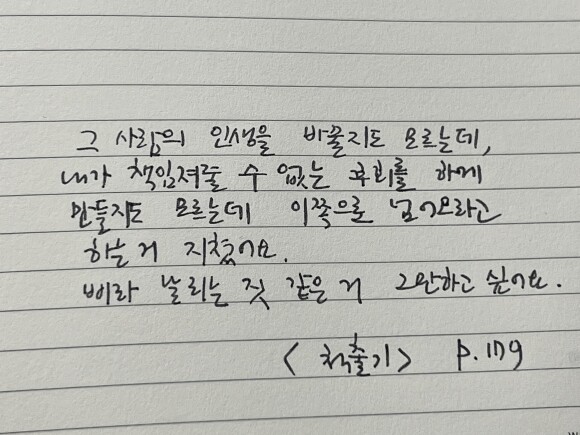 그 사람의 인생을 바꿀지도 모르는데,
내가 책임져줄 수 없는 후회를 하게
만들지도 모르는데 이쪽으로 넘어오라고
하는 거 지쳤어요.
삐라 날리는 짓 같은 거 그만하고 싶어요.
< 책출기 > p.179